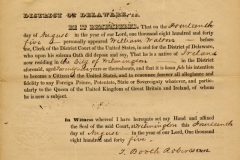 DISTRICT OF DELAWARE, to wit:
BE IT REMEMBERED, That on the Fourteenth
day of August in the year of our Lord, one thousand eight hundred and forty
five personally appeared William Walson before
me, Clerk of the District Court of the United States, in and for the District of Delaware,
who upon his solemn Oath did depose and say, That he is a native of Ireland
now residing in the City of Wilmington in the District
aforesaid, aged years or thereabouts, and that it is bona fide his intention
to become a Citizen of the United States, and to renounce forever all allegiance and
fidelity to any Foreign Prince, Potentate, State or Sovereignty whatever, and particu-
larly to the Queen of the United Kingdom of Great Britain and Ireland, of whom he
is now a subject.
In Witness whereof I have hereunto set my Hand and affixed
the Seal of the said Court, at Wilmington this fourteenth
day of August in the year of our Lord, one thousand
eight hundred and forty five.
J. Booth